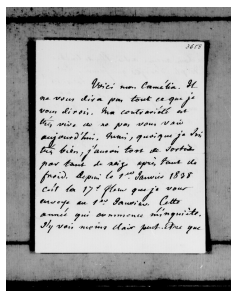 3658
Voici mon Camélia. Il
ne vous dira pas tout ce que je
vous dirais. Ma contrariété est
très vive de ne pas vous voir
aujourd'hui. Mais, quoique je sois
très bien, j'aurais tort de sortir
par tant de neige après tant de
froid. Depuis le 1er Janvier 1838
c'est la 17e fleur que je vous
envoye au 1er Janvier. Cette
année qui commence m'inquiète.
J'y vois moins clair peut-être que